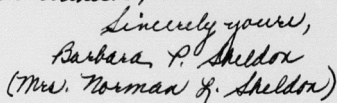 Sincerely yours,
Barbara P. Sheldon
(Mrs. Norman L. Sheldon)